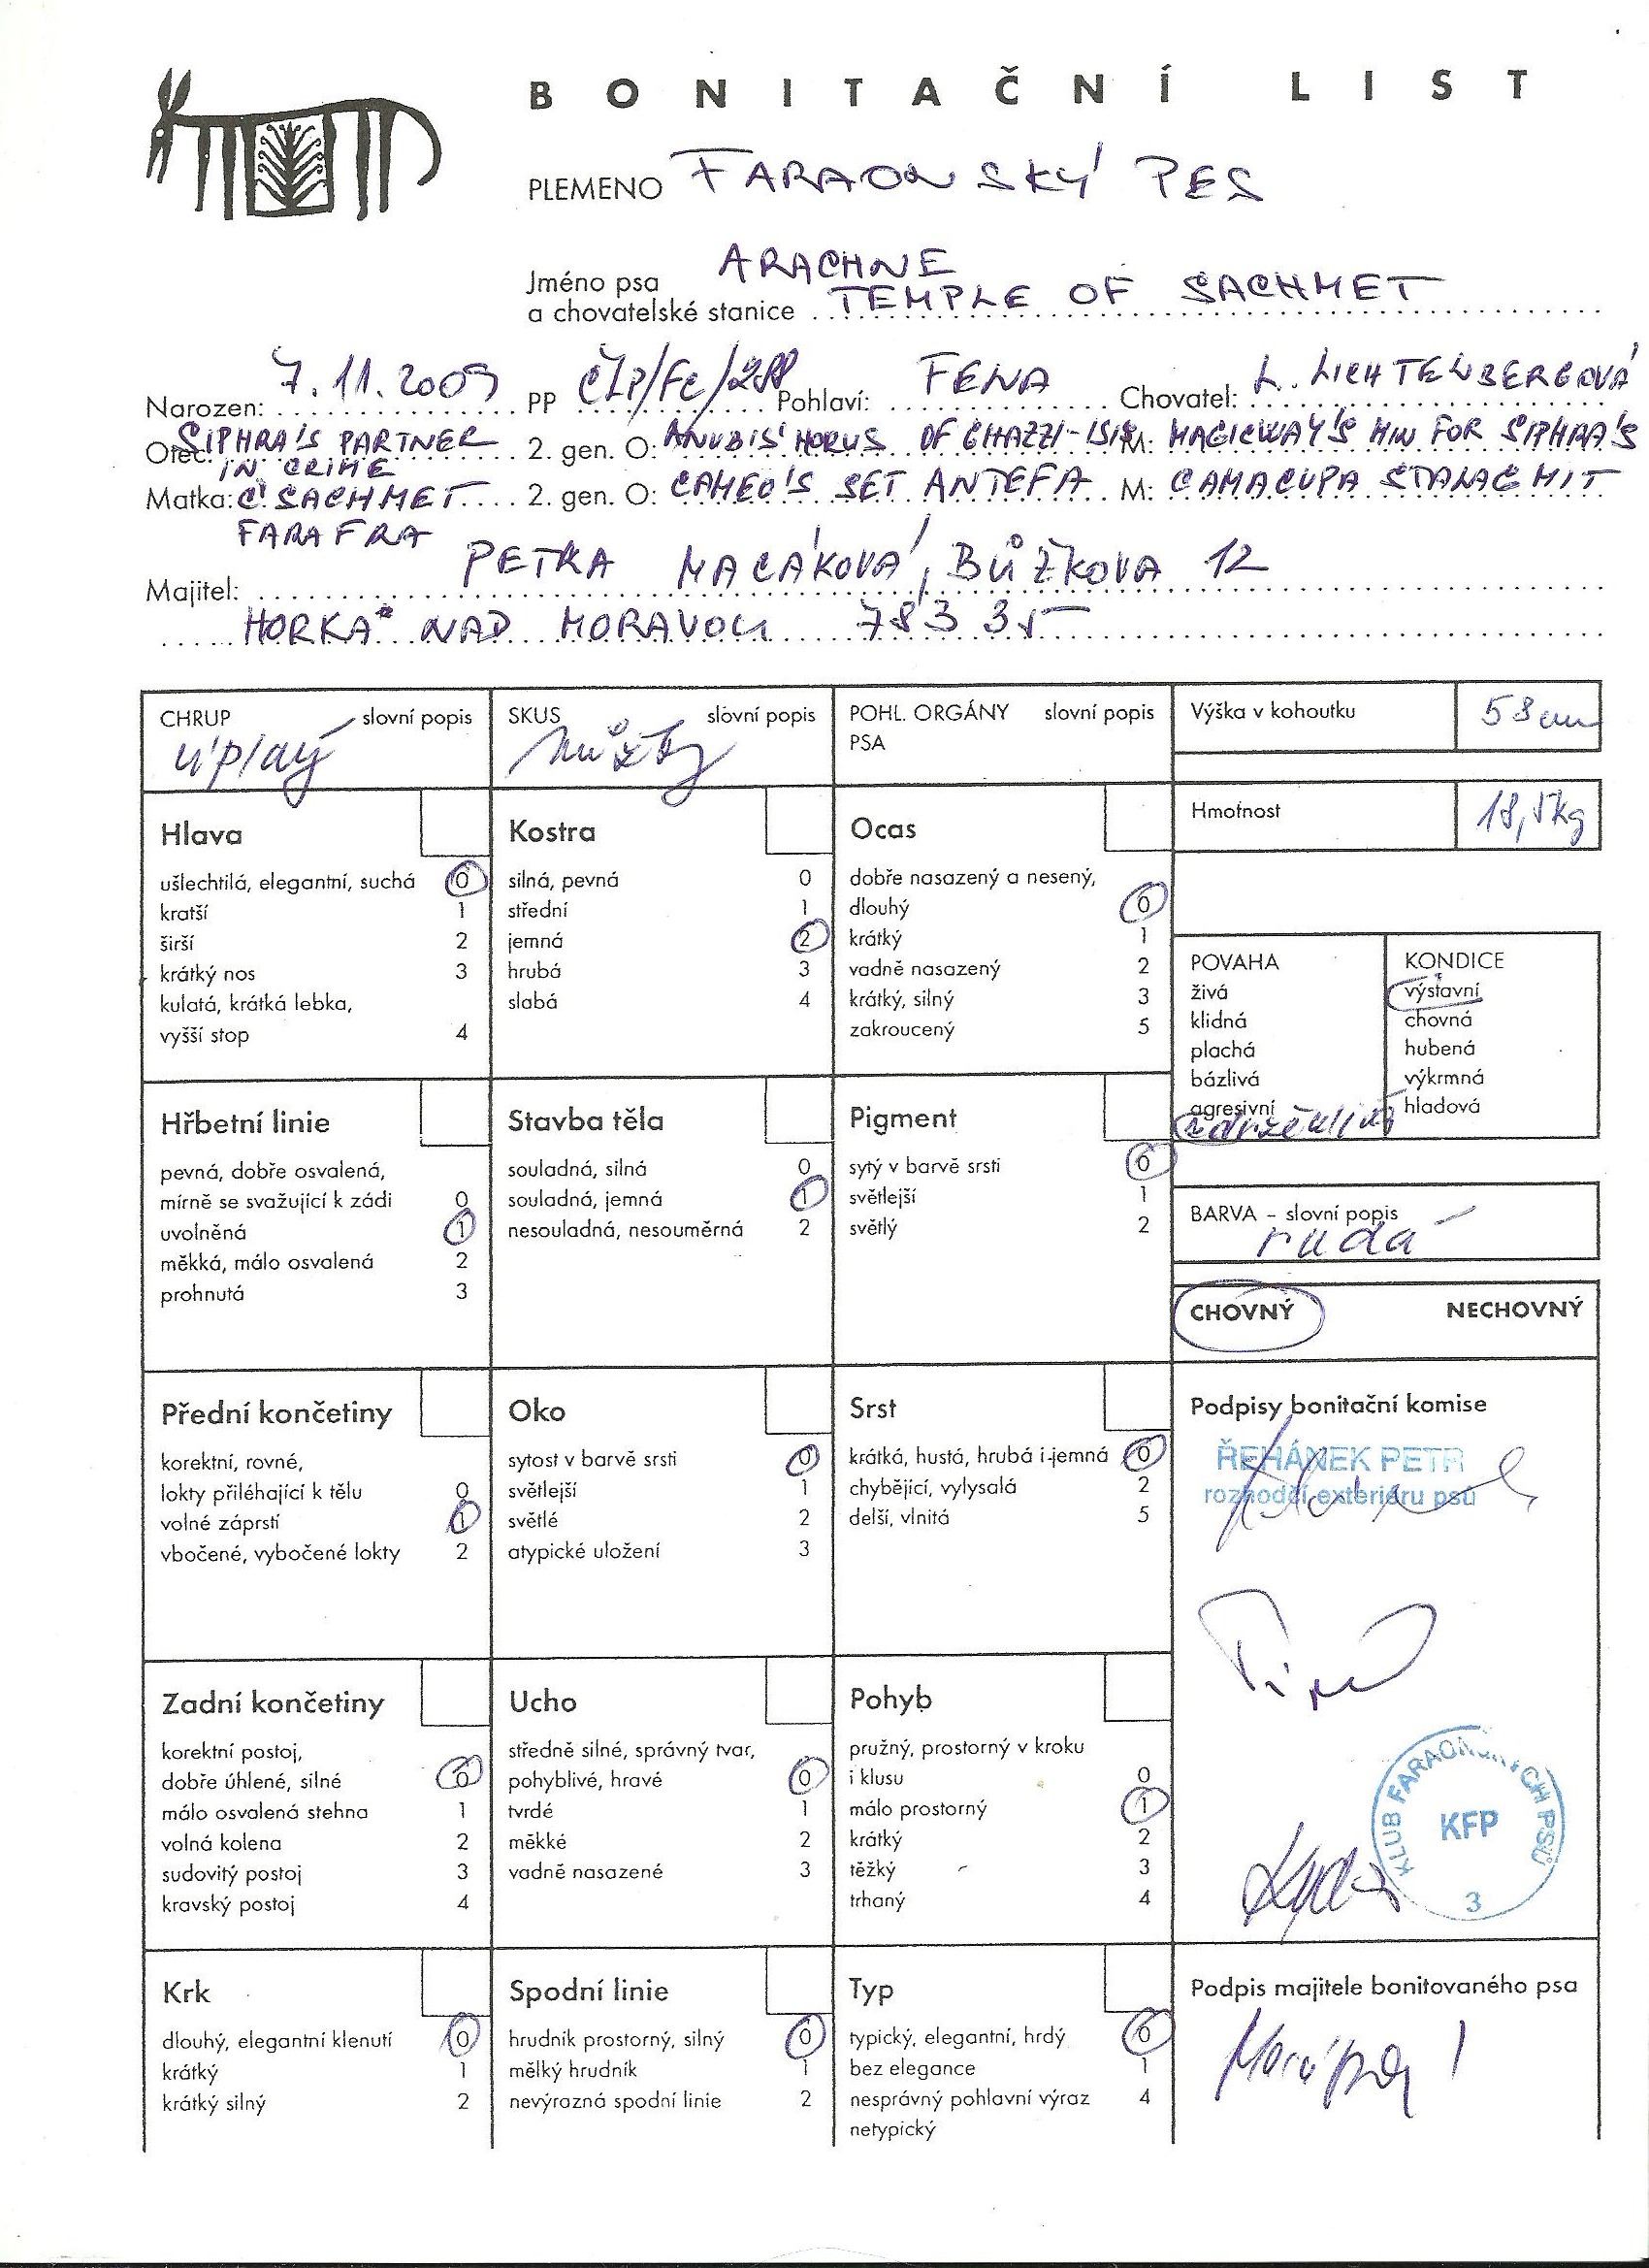 BONITAČNÍ LIST
PLEMENO FARAONSKÝ PES
Jméno psa ARACHNE
a chovatelské stanice TEMPLE OF SACHMET
Narozen: 7.11.2009 PP ČLP/FC/288 Pohlaví: FENA Chovatel: L. LICHTENBERGOVÁ
Otec: SIPHRA'S PARTNER 2. gen. O: ANUBIS' HORUS OF GHAZZI-ISIS M: MAGICWAY'S MIN FOR SIPHRA'S
IN CRIME
Matka: C'SACHMET 2. gen. O: CAMEO'S SET ANTEFA M: CAMACUPA STALAGMIT
FARAFRA
Majitel: PETRA MACÁKOVÁ, BŮŽKOVA 12
HORKA NAD MORAVOU 783 35
CHRUP slovní popis
úplný
SKUS slovní popis
nůžky
POHL. ORGÁNY slovní popis
PSA
Výška v kohoutku 58 cm
Hmotnost 18,5kg
Hlava
ušlechtilá, elegantní, suchá 0
kratší 1
širší 2
krátký nos 3
kulatá, krátká lebka,
vyšší stop 4
Kostra
silná, pevná 0
střední 1
jemná 2
hrubá 3
slabá 4
Ocas
dobře nasazený a nesený,
dlouhý 0
krátký 1
vadně nasazený 2
krátký, silný 3
zakroucený 5
POVAHA
živá
klidná
plachá
bázlivá
agresivní
zdrženlivá
KONDICE
výstavní
chovná
hubená
výkrmná
hladová
Hřbetní linie
pevná, dobře osvalená,
mírně se svažující k zádi 0
uvolněná 1
měkká, málo osvalená 2
prohnutá 3
Stavba těla
souladná, silná 0
souladná, jemná 1
nesouladná, nesouměrná 2
Pigment
sytý v barvě srsti 0
světlejší 1
světlý 2
BARVA – slovní popis
rudá
CHOVNÝ NECHOVNÝ
Přední končetiny
korektní, rovné,
lokty přiléhající k tělu 0
volné záprstí 1
vbočené, vybočené lokty 2
Oko
sytost v barvě srsti 0
světlejší 1
světlé 2
atypické uložení 3
Srst
krátká, hustá, hrubá i jemná 0
chybějící, vylysalá 2
delší, vlnitá 5
Podpisy bonitační komise
ŘEHÁNEK PETR
rozhodčí exteriéru psů
Zadní končetiny
korektní postoj,
dobře úhlené, silné 0
málo osvalená stehna 1
volná kolena 2
sudovitý postoj 3
kravský postoj 4
Ucho
středně silné, správný tvar,
pohyblivé, hravé 0
tvrdé 1
měkké 2
vadně nasazené 3
Pohyb
pružný, prostorný v kroku
i klusu 0
málo prostorný 1
krátký 2
těžký 3
trhaný 4
KLUB FARAONSKÝCH PSŮ
KFP
3
Krk
dlouhý, elegantní klenutí 0
krátký 1
krátký silný 2
Spodní linie
hrudník prostorný, silný 0
mělký hrudník 1
nevýrazná spodní linie 2
Typ
typický, elegantní, hrdý 0
bez elegance 1
nesprávný pohlavní výraz 4
netypický
Podpis majitele bonitovaného psa